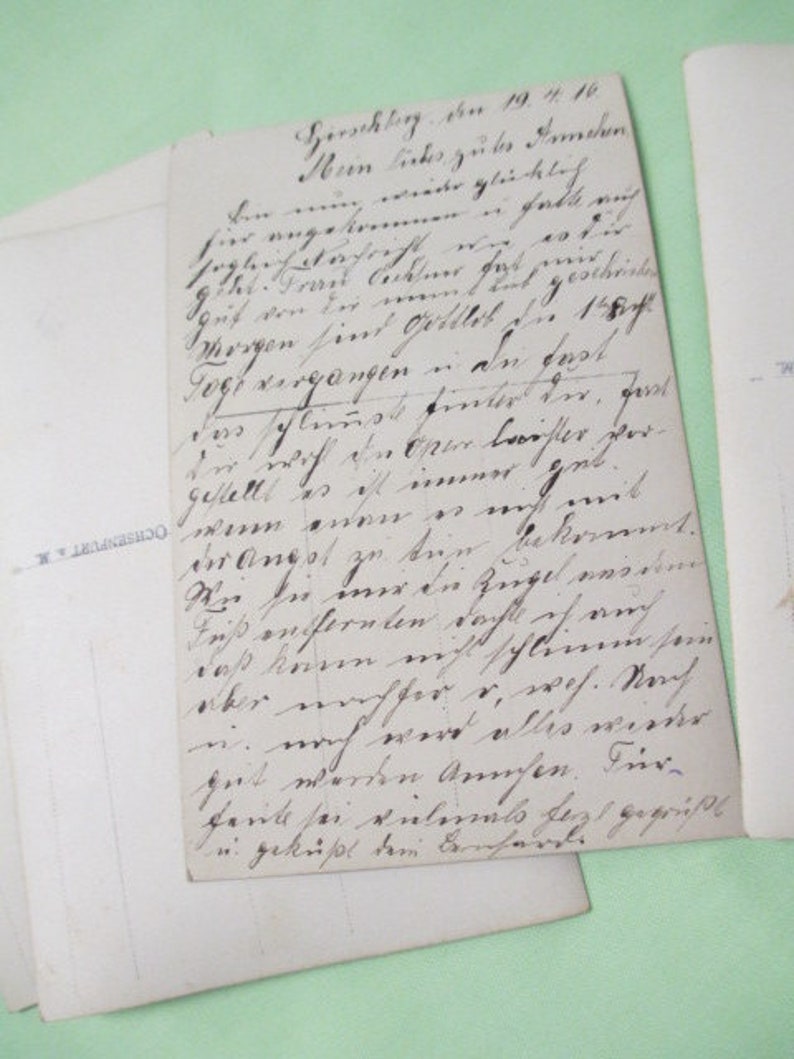 Hirschberg, den 19. 4. 16.
Mein liebes gutes Annchen,
Bin nun wieder glücklich
hier angekommen u hatte auch
sogleich Nachricht wie es dir
geht. Frau hat mir
gut von dir geschrieben
Morgen sind Gottlob die
Tage vergangen u du hast
das schlimmste hinter dir, hast
dir wohl die Oper leichter vor-
gestellt es ist immer gut
wenn man es nicht mit
der Angst zu tun bekommt.
Wie sie mir die Kugel aus dem
Fuß entfernten dachte ich auch
daß kann nicht schlimm sein
aber nachher o, weh. Nach
u. nach werd alles wieder
gut werden Annchen. Für
heute sei vielmals herzl gegrüßt
u. geküßt dein Bernhard.
OCHSENFURT a. M.
M.